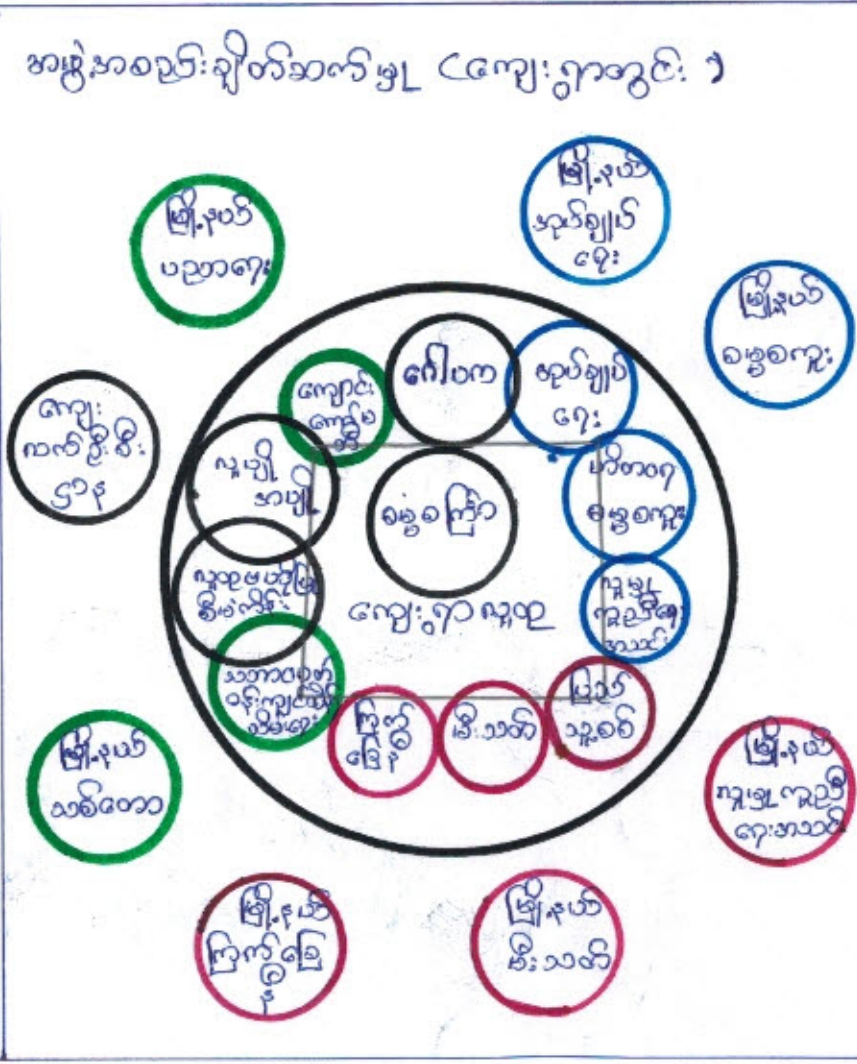 အဖွဲ့အစည်းချိတ်ဆက်မှု (ကျေးရွာတွင်း)
မြို့နယ်
ပညာရေး
မြို့နယ်
အုပ်ချုပ်
ရေး
မြို့နယ်
စမ္ပစကူး
ကျေး
လက်ဦးစီး
ဌာန
ကျောင်း
ကော်မ
တီ
ဂေါပက
အုပ်ချုပ်
ရေး
လူပျို
အပျို
စမ္ပစကြာ
ဟိတာဝရ
စမ္ပစကူး
လူထုဗဟိုပြု
စီမံကိန်း
ကျေးရွာလူထု
လူမှု
ကူညီရေး
အသင်း
သဘာဝပတ်
ဝန်းကျင်ထိန်း
သိမ်းရေး
ကြက်
ခြေနီ
မီးသတ်
ပြည်
သူ့စစ်
မြို့နယ်
သစ်တော
မြို့နယ်
လူမှုကူညီ
ရေးအသင်း
မြို့နယ်
ကြက်ခြေ
နီ
မြို့နယ်
မီးသတ်